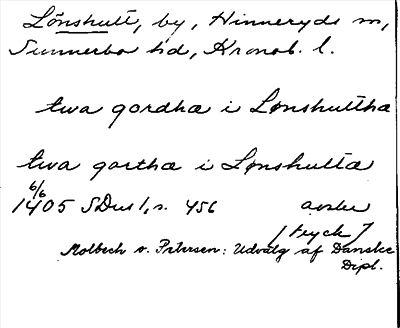 Lönshult, by, Hinneryds sn,
Sunnerbo hd, Kronob. l.
twa gordhæ i Lønshulthæ
twa gorthæ i Lønshultæ
6/6
1405 SDns 1, s. 456 avskr
[tryck]
Molbech o. Petersen: Udvalg af Danske
Dipl.